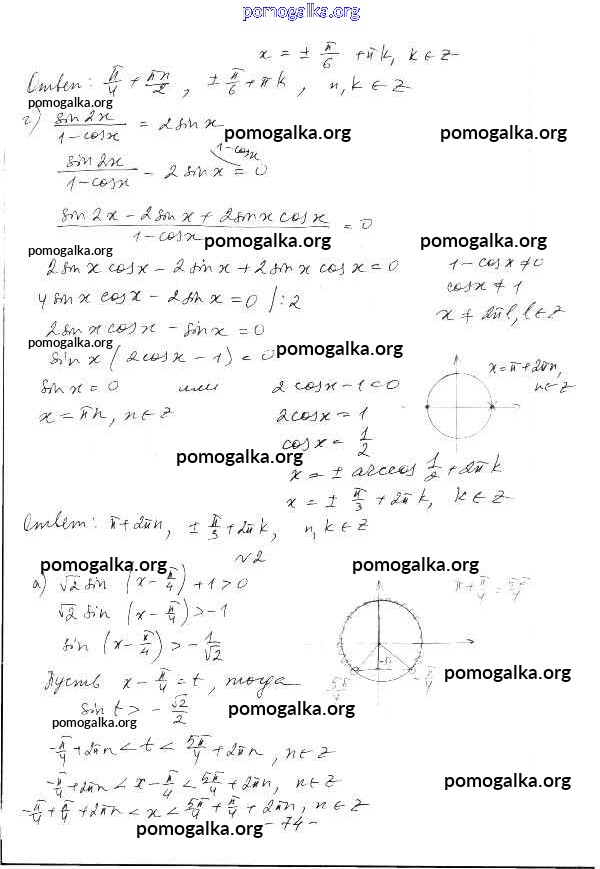 pomogalka.org
x = ± π/6 + πk, k ∈ Z
Ответ: π/4 + πn/2, ± π/6 + πk, n, k ∈ Z
pomogalka.org
г) sin2x/(1-cosx) = 2sinx
pomogalka.org pomogalka.org
sin2x/(1-cosx) - 2sinx = 0
1-cosx
(sin2x - 2sinx + 2sinxcosx)/(1-cosx) = 0
pomogalka.org pomogalka.org pomogalka.org
2sinxcosx - 2sinx + 2sinxcosx = 0
1-cosx ≠ 0
4sinxcosx - 2sinx = 0 /:2
cosx ≠ 1
2sinxcosx - sinx = 0
x ≠ 2πl, l ∈ Z
pomogalka.org pomogalka.org
sinx(2cosx - 1) = 0
x = π + 2πn,
n ∈ Z
sinx = 0 или 2cosx - 1 = 0
x = πn, n ∈ Z 2cosx = 1
cosx = 1/2
pomogalka.org
x = ± arccos 1/2 + 2πk
x = ± π/3 + 2πk, k ∈ Z
Ответ: π + 2πn, ± π/3 + 2πk, n, k ∈ Z
√2
pomogalka.org pomogalka.org
а) √2 sin (x - π/4) + 1 > 0
π + π/4 = 5π/4
√2 sin (x - π/4) > -1
sin (x - π/4) > - 1/√2
pomogalka.org
Пусть x - π/4 = t, тогда
5π/4 - π/4
sin t > - √2/2
pomogalka.org pomogalka.org
- π/4 + 2πn < t < 5π/4 + 2πn, n ∈ Z
- π/4 + 2πn < x - π/4 < 5π/4 + 2πn, n ∈ Z
pomogalka.org
- π/4 + π/4 + 2πn < x < 5π/4 + π/4 + 2πn, n ∈ Z
pomogalka.org
- 74 -